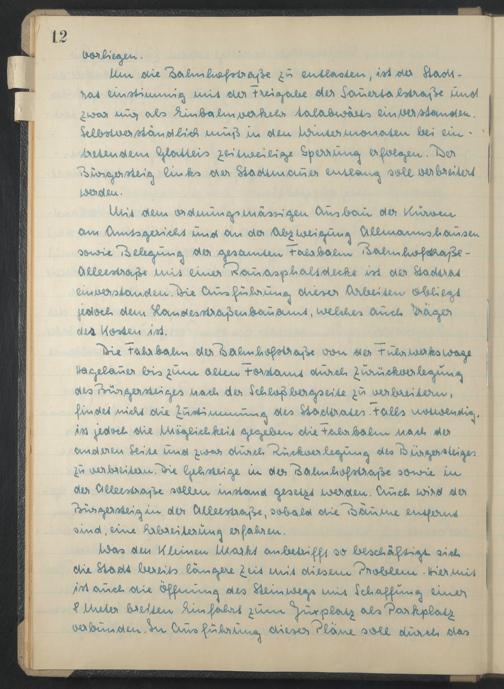 12
vorliegen.
Um die Bahnhofstraße zu entlasten, ist der Stadt-
rat einstimmig mit der Freigabe der Sauertalstraße und
zwar nur als Einbahnverkehr talabwärts einverstanden.
Selbstverständlich muß in den Wintermonaten bei ein-
tretendem Glatteis zeitweilige Sperrung erfolgen. Der
Bürgersteig links der Stadtmauer entlang soll verbreitert
werden.
Mit dem ordnungsmässigen Ausbau der Kurven
am Amtsgericht und an der Abzweigung Allmannshausen
sowie Belegung der gesamten Fahrbahn Bahnhofstraße-
Alleestraße mit einer Rauasphaltdecke ist der Stadtrat
einverstanden. Die Ausführung dieser Arbeiten obliegt
jedoch dem Landesstraßenbauamt, welches auch Träger
der Kosten ist.
Die Fahrbahn der Bahnhofstraße von der Fuhrwerkswage
bis zum alten Forstamt durch Zurückverlegung
des Bürgersteiges nach der Schloßbergseite zu verbreitern,
findet nicht die Zustimmung des Stadtrates. Falls notwendig,
ist jedoch die Möglichkeit gegeben die Fahrbahn nach der
anderen Seite und zwar durch Rückverlegung des Bürgersteiges
zu verbreitern. Die Gehsteige in der Bahnhofstraße sowie in
der Alleestraße sollen instand gesetzt werden. Auch wird der
Bürgersteig in der Alleestraße, sobald die Bäume entfernt
sind, eine Erbreiterung erfahren.
Was den Kleinen Markt anbetrifft so beschäftigt sich
die Stadt bereits längere Zeit mit diesem Problem. Hiermit
ist auch die Öffnung des Steinwegs mit Schaffung einer
8 Meter breiten Einfahrt zum als Parkplatz
verbunden. In Ausführung dieser Pläne soll durch das